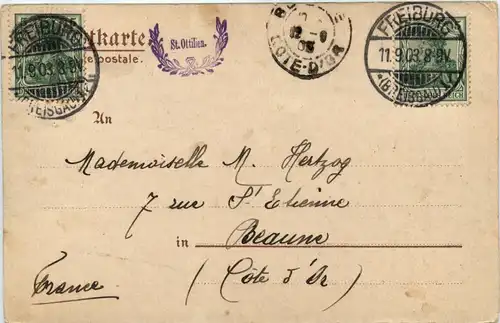 FREIBURG
9.03.8-9V.
(BREISGAU)
tkarte
e postale.
St. Ottilien.
BE
12-9
03
COTE-D'OR
FREIBURG
11.9.03.8-9V.
*(BREISGAU)
An
Mademoiselle M. Hertzog
7 rue St Etienne
in Beaune
(Côte d'Or)
France